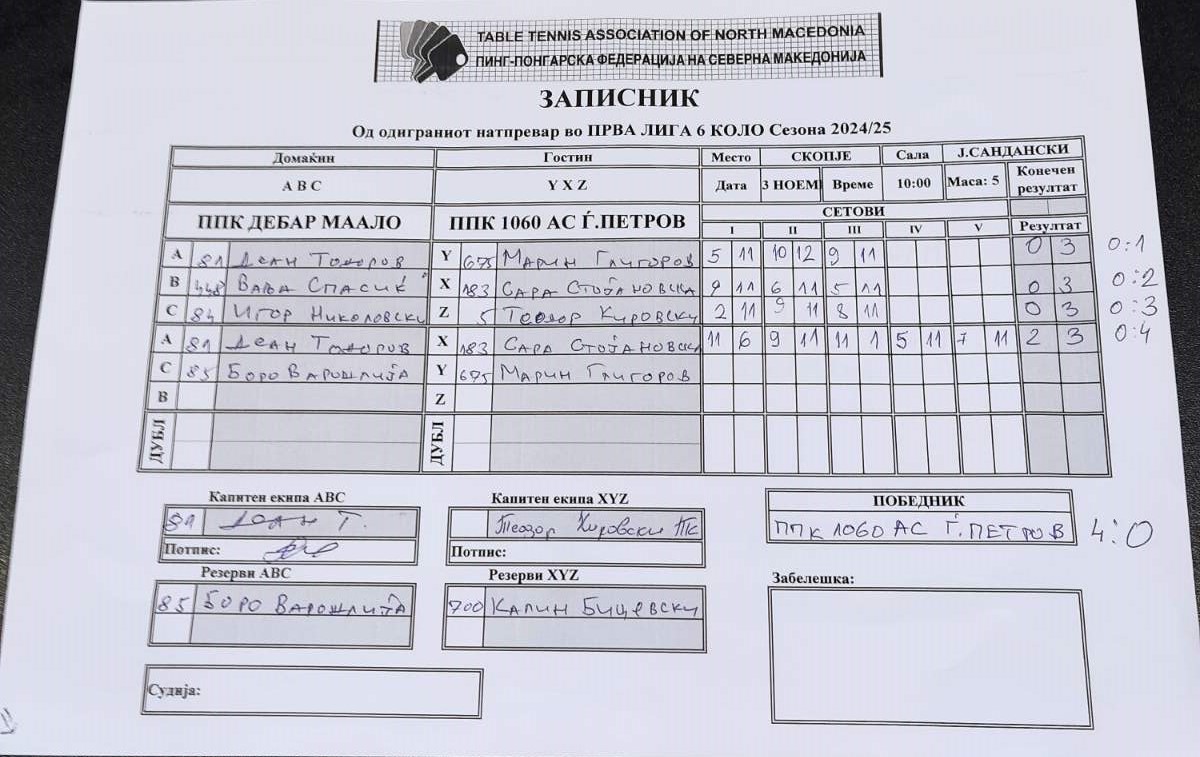 TABLE TENNIS ASSOCIATION OF NORTH MACEDONIA
ПИНГ-ПОНГАРСКА ФЕДЕРАЦИЈА НА СЕВЕРНА МАКЕДОНИЈА
ЗАПИСНИК
Од одиграниот натпревар во ПРВА ЛИГА 6 КОЛО Сезона 2024/25
Домаќин Гостин Место СКОПЈЕ Сала Ј.САНДАНСКИ
A B C Y X Z Дата 3 НОЕМ Време 10:00 Маса: 5 Конечен резултат
ППК ДЕБАР МААЛО ППК 1060 АС Ѓ.ПЕТРОВ СЕТОВИ
I II III IV V Резултат
A 81 Деан Тодоров Y 675 Марин Глигоров 5 11 10 12 9 11 0 3 0:1
B 448 Вања Спасиќ X 183 Сара Стојановска 9 11 6 11 5 11 0 3 0:2
C 84 Игор Николовски Z 5 Теодор Кировски 2 11 9 11 8 11 0 3 0:3
A 81 Деан Тодоров X 183 Сара Стојановска 11 6 9 11 11 1 5 11 7 11 2 3 0:4
C 85 Боро Варошлија Y 675 Марин Глигоров
B Z
ДУБЛ ДУБЛ
Капитен екипа ABC Капитен екипа XYZ ПОБЕДНИК
81 Деан Т. Теодор Кировски ППК 1060 АС Ѓ.ПЕТРОВ 4:0
Потпис: Потпис:
Резерви ABC Резерви XYZ Забелешка:
85 Боро Варошлија 700 Калин Бицевски
Судија: